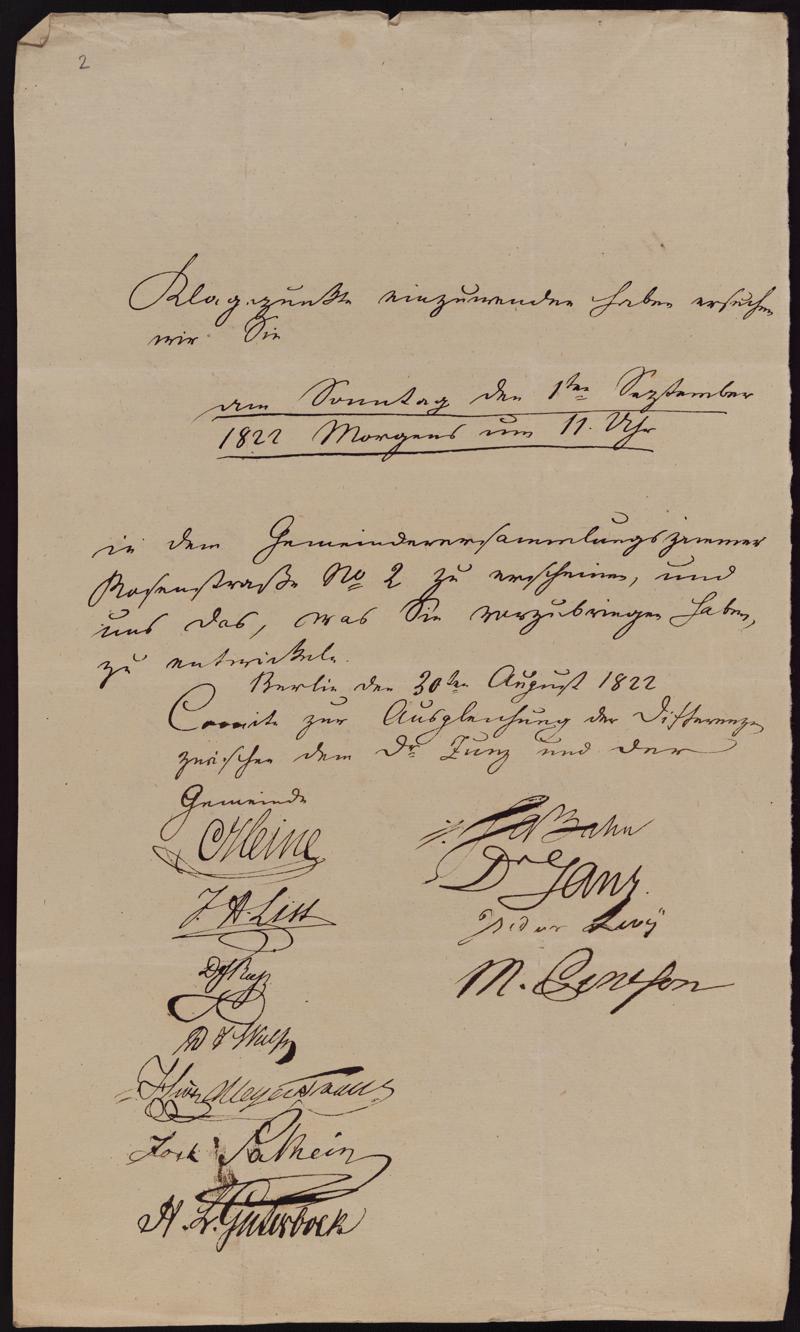 2
Klagepunkte einzuwenden haben ersuchen
wir Sie
am Sonntag den 1ten September
1822 Morgens um 11. Uhr
in dem Gemeindeversammlungszimmer
Rosenstraße No 2 zu erscheinen, und
uns das, was Sie vorzubringen haben,
zu entwickeln.
Berlin den 30ten August 1822
Comite zur Ausgleichung der Differenzen
zwischen dem Dr Zunz und der
Gemeinde
Heine
J. A. List
M.
Dr Ganz.
Isidor Levy
H. L. Güterbock